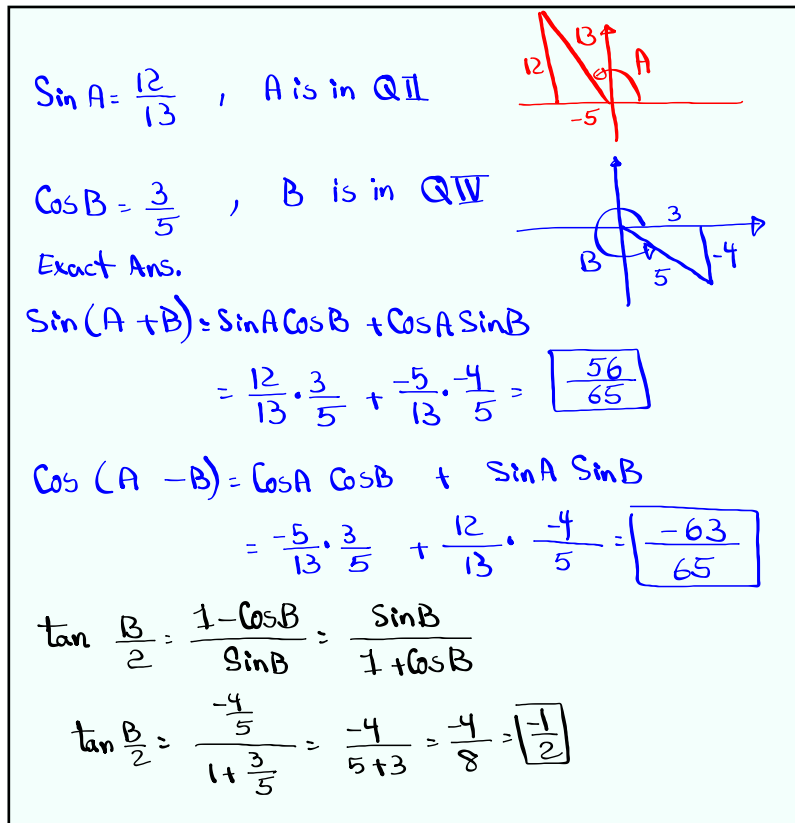 Sin A = 12/13 , A is in QII
12 13 A
-5
Cos B = 3/5 , B is in QIV
3
B 5 -4
Exact Ans.
Sin(A + B) = SinA CosB + CosA SinB
= 12/13 · 3/5 + -5/13 · -4/5 = 56/65
Cos (A - B) = CosA CosB + SinA SinB
= -5/13 · 3/5 + 12/13 · -4/5 = -63/65
tan B/2 = (1 - CosB)/(SinB) = (SinB)/(1 + CosB)
tan B/2 = (-4/5)/(1 + 3/5) = -4/(5+3) = -4/8 = -1/2